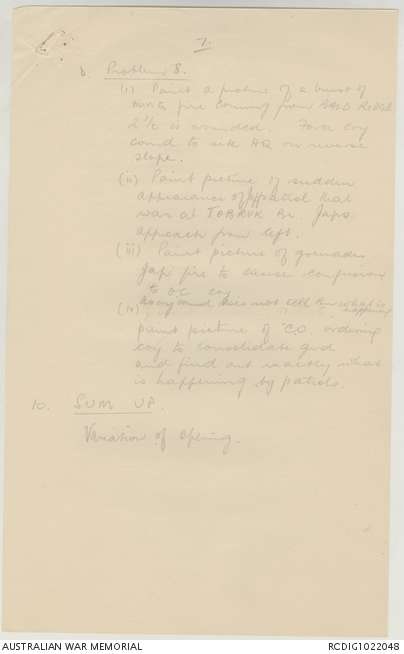 7.
b. Problem 8.
(i) Paint a picture of a burst of
fire coming from BALD RIDGE
2 i/c is wounded. Force coy
comd to site HQ on reverse
slope.
(ii) Paint picture of sudden
appearance of patrol that
was at TOBRUK Br. Japs
approach from left.
(iii) Paint picture of grenades
Jap fire to cause confusion
to OC coy
enemy and does not tell them what is happening
(iv) paint picture of C.O. ordering
coy to consolidate gnd
and find out exactly what
is happening by patrols.
10. SUM UP.
Variation of opening.
AUSTRALIAN WAR MEMORIAL
RCDIG1022048